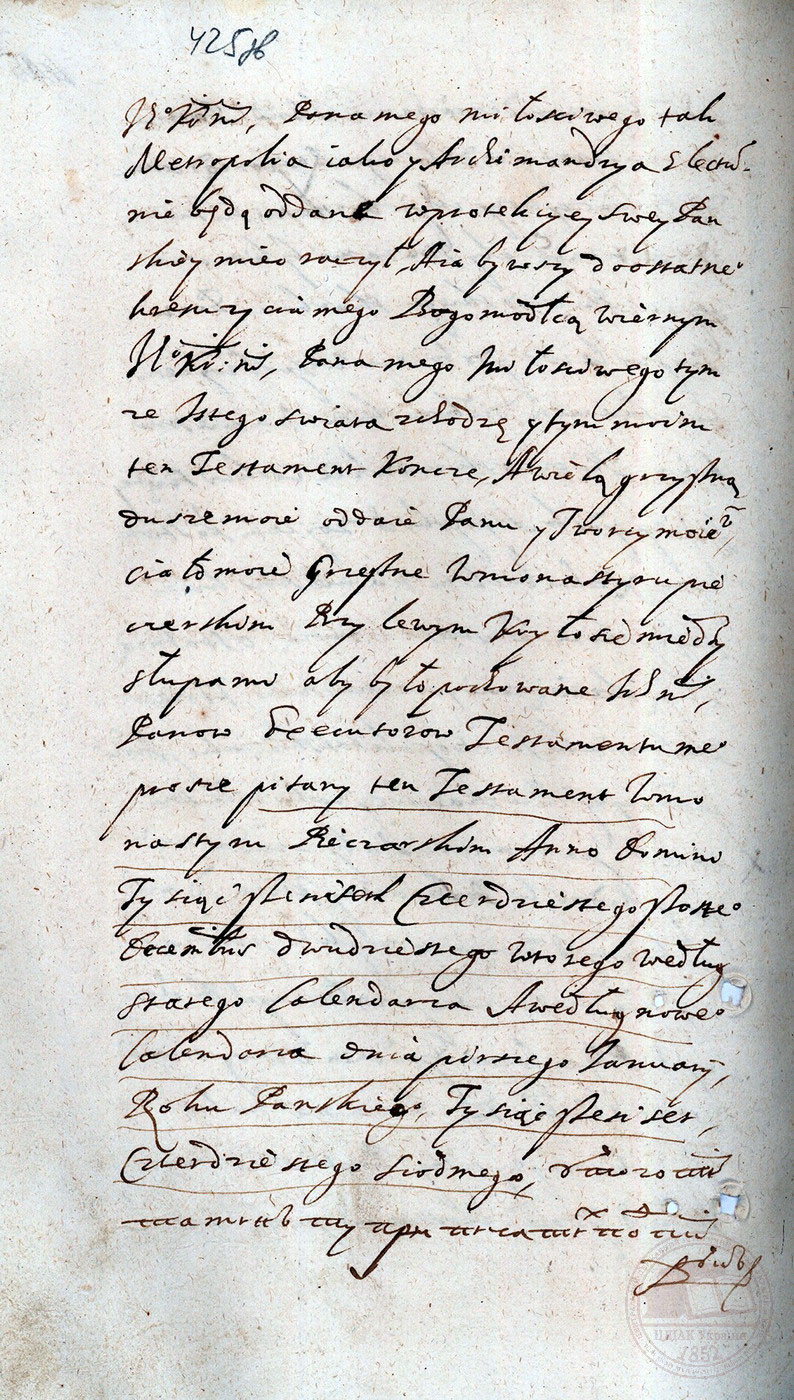 425 зв
Je° Kr. m., Pana mego miłosciwego tak
Metropolia iako y Archimandrya Electow-
nie będą oddane w protekcyey swey Pan
skiey miec raczył, A ia bywszy do ostatne°
kresu zycia mego Bogomodłcą wiernym
Je° Kr: m., Pana mego Miłosciwego tym
ze Istego swiata schodzę y tym moim
ten Testament Koncze, A wielą grzyszną
dusze moię oddaie Panu y Tworcy moie°,
ciało moie Grzeszne w monastyru pie
czerskim Przy lewym Kryłosie między
słupami aby było pochowane Ich m.,
Panow Executorow Testamentu me°
prosze pisany ten Testament w mo
nastyru Pieczarskim Anno Domini
Tysiąc szescset Czterdziestego szoste°
Decembris dwudziestego wtorego według
starego Calendarza A według nowe°
Calendarza dnia pirszego January,
Roku Panskiego, Tysiąc szesc set,
Czterdziestego siodmego,
при
ЦДІАК України
1852